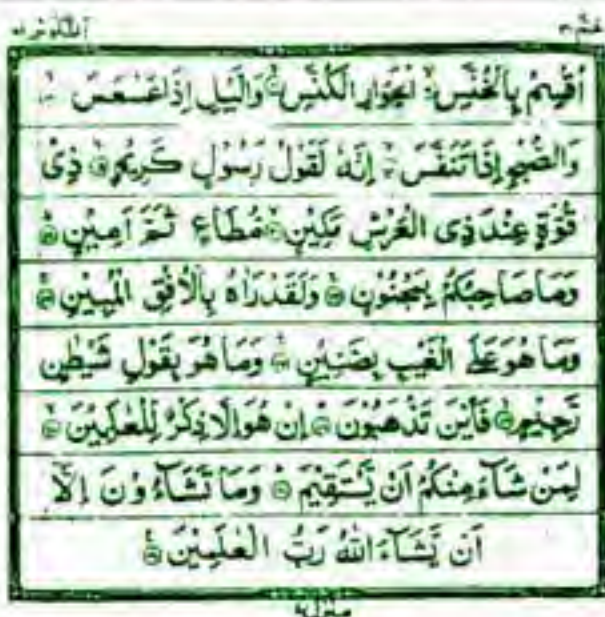 عمّ ٣٠
التكوير ٨١
اُقْسِمُ بِالْخُنَّسِ ۙ الْجَوَارِ الْكُنَّسِ ۙ وَالَّيْلِ اِذَا عَسْعَسَ ۙ
وَالصُّبْحِ اِذَا تَنَفَّسَ ۙ اِنَّهٗ لَقَوْلُ رَسُوْلٍ كَرِيْمٍ ۙ ذِىْ
قُوَّةٍ عِنْدَ ذِى الْعَرْشِ مَكِيْنٍ ۙ مُطَاعٍ ثَمَّ اَمِيْنٍ ۙ
وَمَا صَاحِبُكُمْ بِمَجْنُوْنٍ ۚ وَلَقَدْ رَاٰهُ بِالْاُفُقِ الْمُبِيْنِ ۚ
وَمَا هُوَ عَلَى الْغَيْبِ بِضَنِيْنٍ ۚ وَمَا هُوَ بِقَوْلِ شَيْطٰنٍ
رَّجِيْمٍ ۙ فَاَيْنَ تَذْهَبُوْنَ ۙ اِنْ هُوَ اِلَّا ذِكْرٌ لِّلْعٰلَمِيْنَ ۙ
لِمَنْ شَآءَ مِنْكُمْ اَنْ يَّسْتَقِيْمَ ۙ وَمَا تَشَآءُوْنَ اِلَّاۤ
اَنْ يَّشَآءَ اللّٰهُ رَبُّ الْعٰلَمِيْنَ ۠